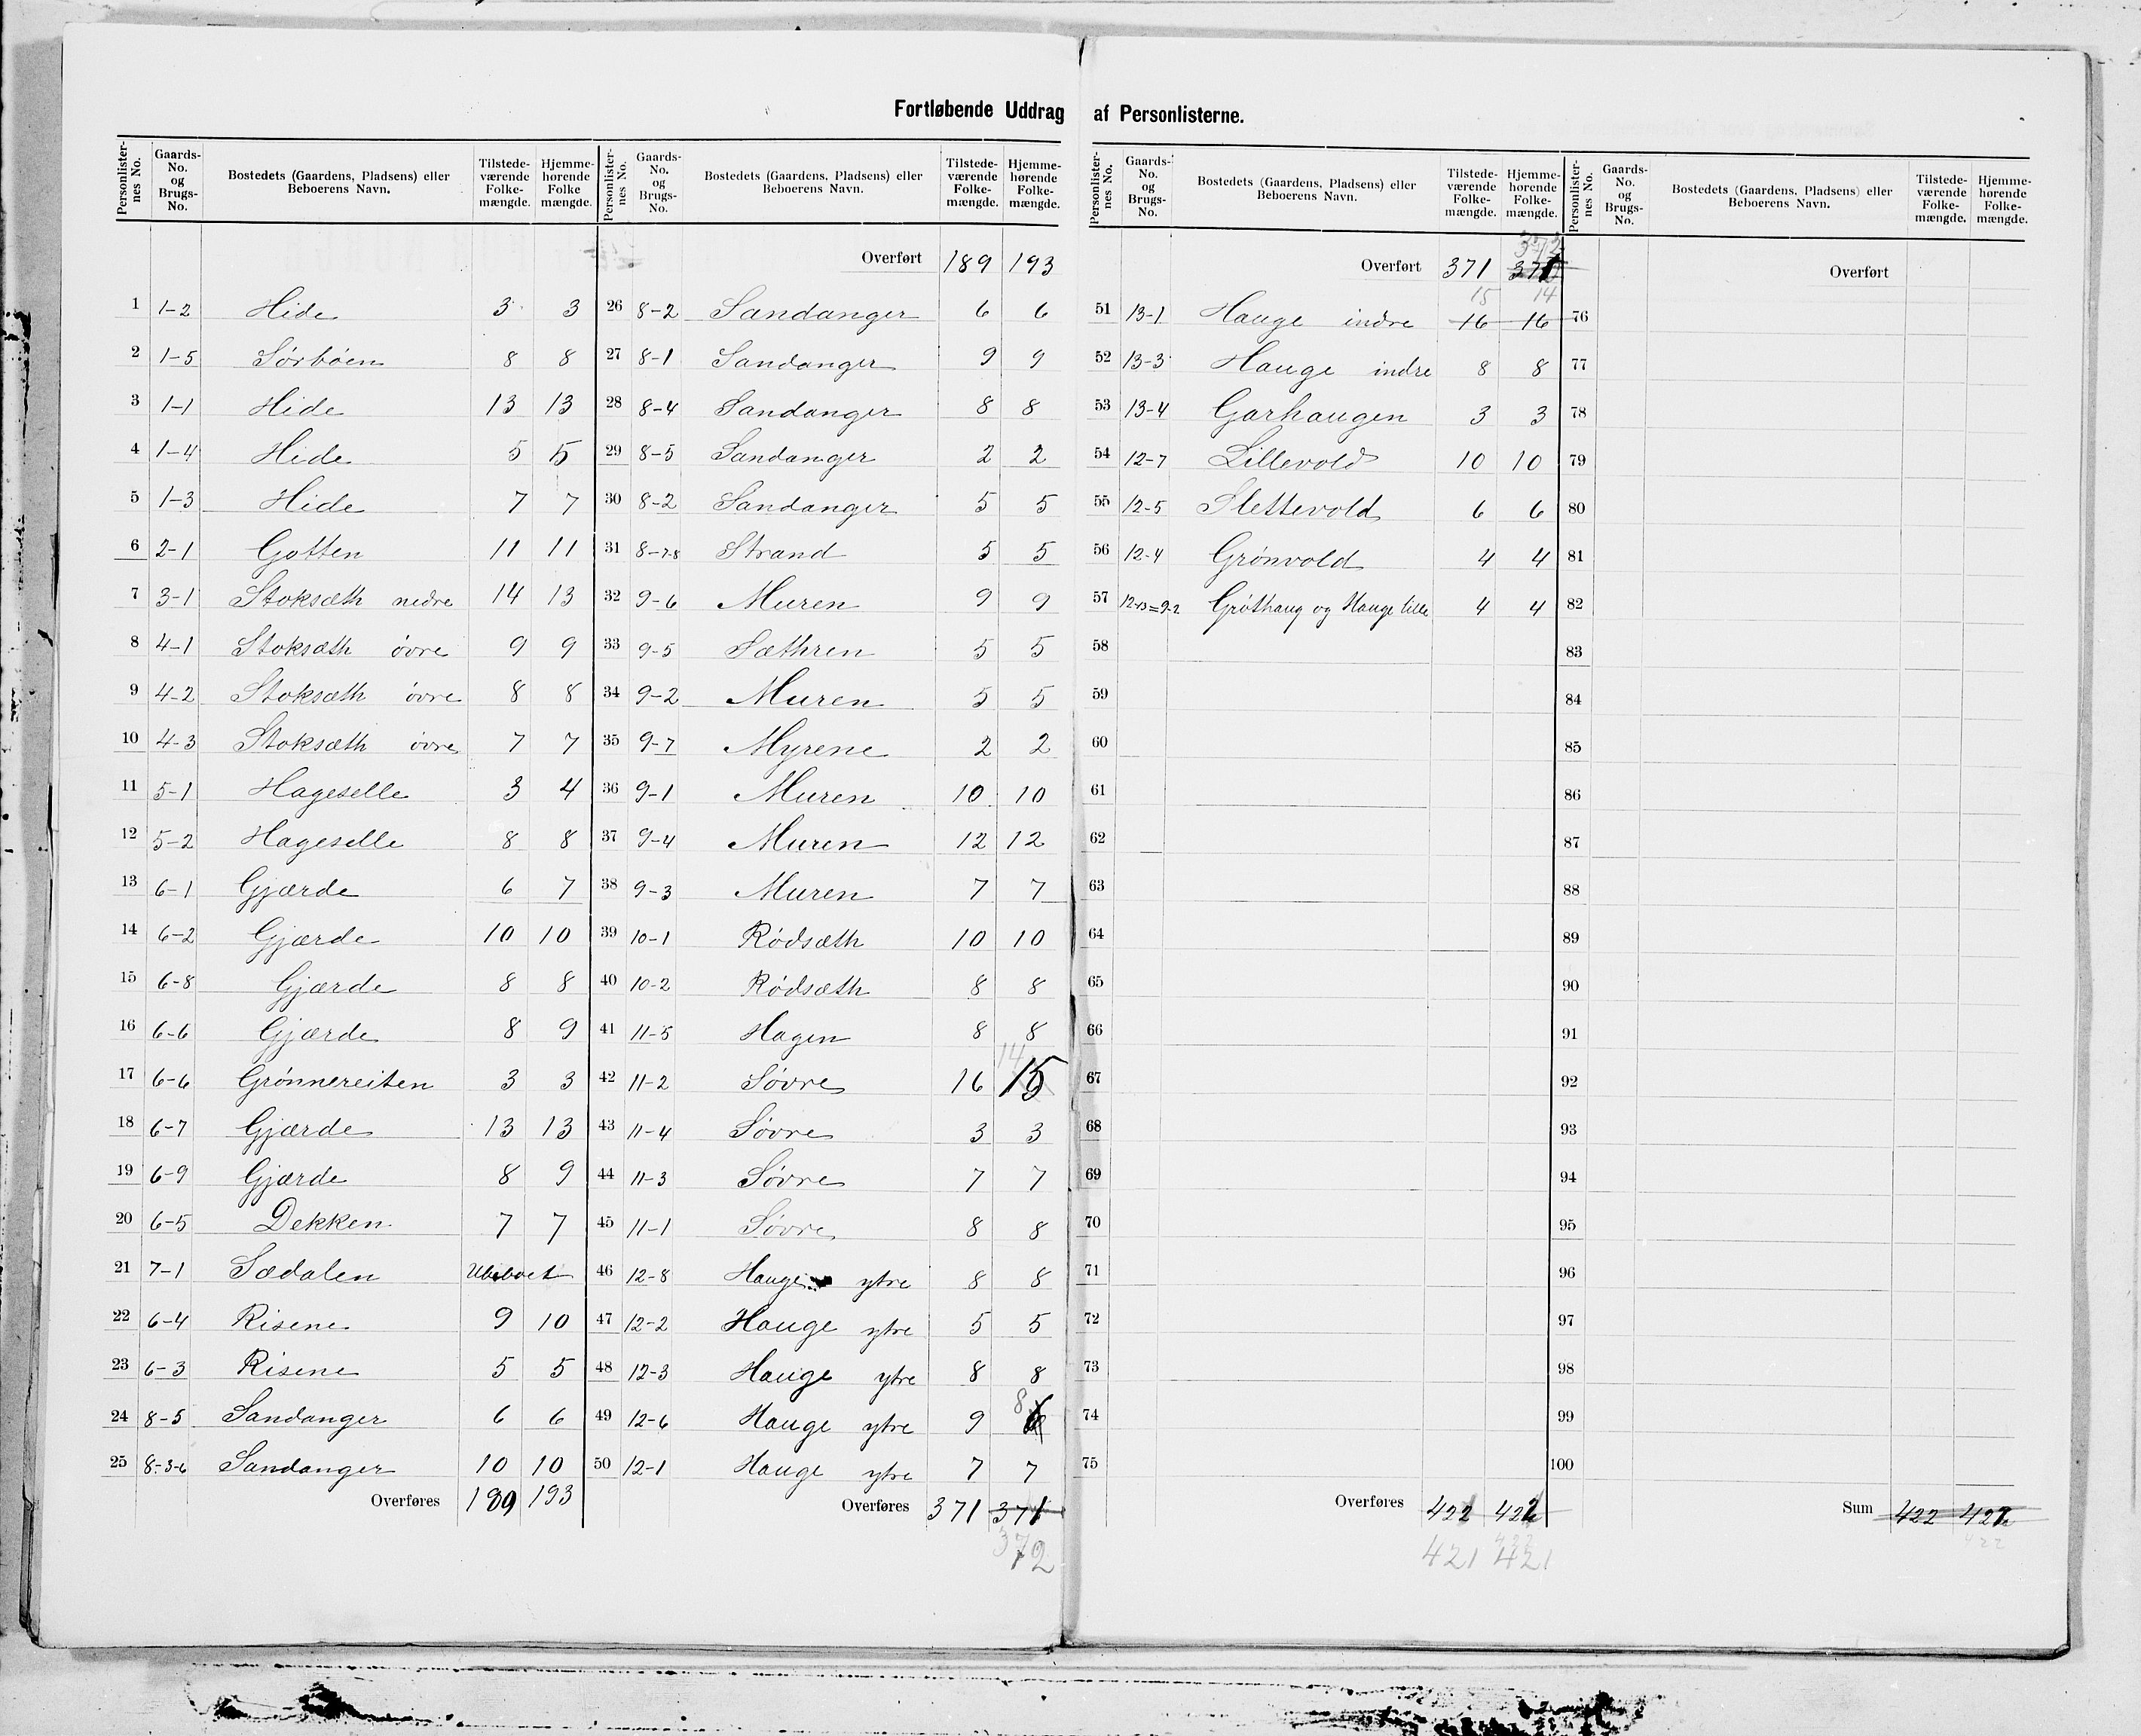 Fortløbende Uddrag af Personlisterne.
Personlister-nes No. Gaards-No. og Brugs-No. Bostedets (Gaardens, Pladsens) eller Beboerens Navn. Tilstede-værende Folke-mængde. Hjemme-hørende Folke mængde.
1 1-2 Hide 3 3
2 1-5 Sørbøen 8 8
3 1-1 Hide 13 13
4 1-4 Hide 5 5
5 1-3 Hide 7 7
6 2-1 Gotten 11 11
7 3-1 Stoksæth nedre 14 13
8 4-1 Stoksæth øvre 9 9
9 4-2 Stoksæth øvre 8 8
10 4-3 Stoksæth øvre 7 7
11 5-1 Hageselle 3 4
12 5-2 Hageselle 8 8
13 6-1 Gjærde 6 7
14 6-2 Gjærde 10 10
15 6-8 Gjærde 8 8
16 6-6 Gjærde 8 9
17 6-6 Grønnereiten 3 3
18 6-7 Gjærde 13 13
19 6-9 Gjærde 8 9
20 6-5 Dekken 7 7
21 7-1 Sædalen Ubeboet
22 6-4 Risene 9 10
23 6-3 Risene 5 5
24 8-5 Sandanger 6 6
25 8-3-6 Sandanger 10 10
Overføres 189 193
Personlister-nes No. Gaards-No. og Brugs-No. Bostedets (Gaardens, Pladsens) eller Beboerens Navn. Tilstede-værende Folke-mængde. Hjemme-hørende Folke-mængde.
Overført 189 193
26 8-2 Sandanger 6 6
27 8-1 Sandanger 9 9
28 8-4 Sandanger 8 8
29 8-5 Sandanger 2 2
30 8-2 Sandanger 5 5
31 8-7-8 Strand 5 5
32 9-6 Muren 9 9
33 9-5 Sæthren 5 5
34 9-2 Muren 5 5
35 9-7 Myrene 2 2
36 9-1 Muren 10 10
37 9-4 Muren 12 12
38 9-3 Muren 7 7
39 10-1 Rødsæth 10 10
40 10-2 Rødsæth 8 8
41 11-5 Hagen 8 8
14
42 11-2 Søvre 16 15
43 11-4 Søvre 3 3
44 11-3 Søvre 7 7
45 11-1 Søvre 8 8
46 12-8 Hauge ytre 8 8
47 12-2 Hauge ytre 5 5
48 12-3 Hauge ytre 8 8
49 12-6 Hauge ytre 9 8
50 12-1 Hauge ytre 7 7
Overføres 371 371
372
Personlister-nes No. Gaards-No. og Brugs-No. Bostedets (Gaardens, Pladsens) eller Beboerens Navn. Tilstede-værende Folke-mængde. Hjemme-hørende Folke-mængde.
372
Overført 371 371
15 14
51 13-1 Hauge indre 16 16
52 13-3 Hauge indre 8 8
53 13-4 Garhaugen 3 3
54 12-7 Lillevold 10 10
55 12-5 Slettevold 6 6
56 12-4 Grønvold 4 4
57 12-13=9-2 Grøthaug og Hauge lille 4 4
58
59
60
61
62
63
64
65
66
67
68
69
70
71
72
73
74
75
Overføres 422 422
422
421 421
Personlister-nes No. Gaards-No. og Brugs-No. Bostedets (Gaardens, Pladsens) eller Beboerens Navn. Tilstede-værende Folke-mængde. Hjemme-hørende Folke-mængde.
Overført
76
77
78
79
80
81
82
83
84
85
86
87
88
89
90
91
92
93
94
95
96
97
98
99
100
Sum 422 422
422